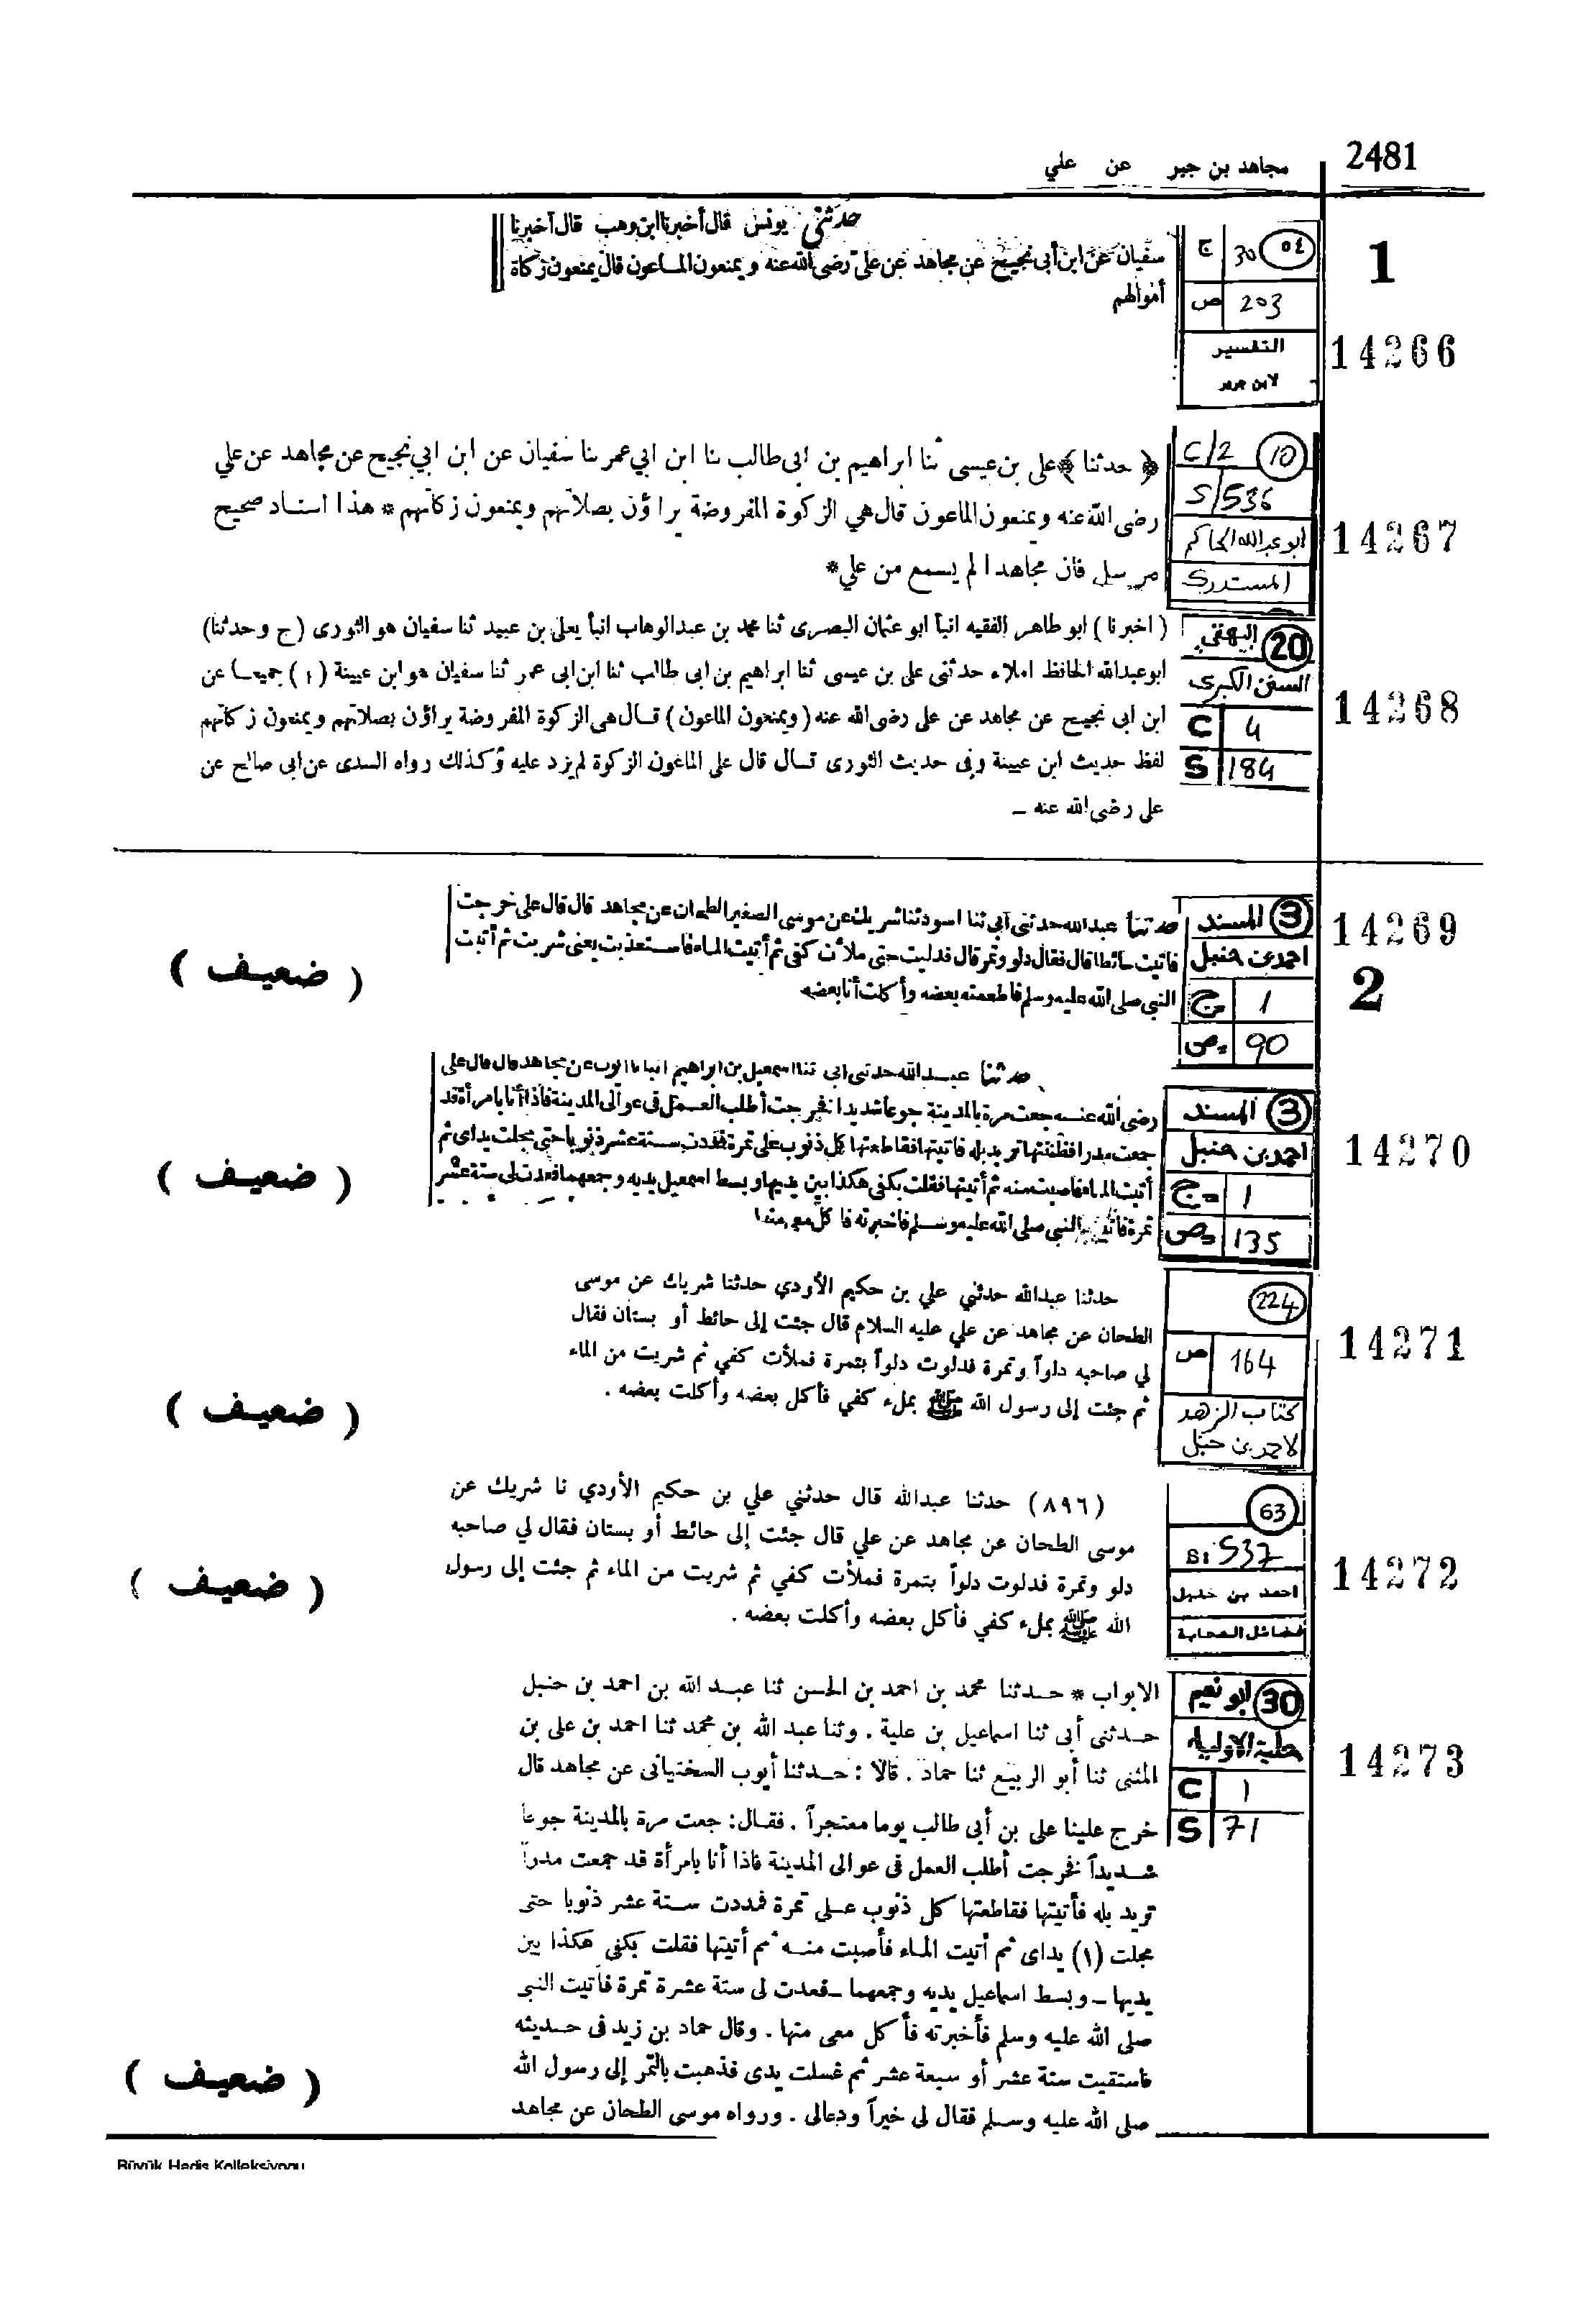 2481
مجاهد بن جبر عن علي
1
14266
٥٤ 30 ج
203 ص
التفسير
لابن جرير
حدثني يونس قال أخبرنا ابن وهب قال أخبرنا
سفيان عن ابن أبي نجيح عن مجاهد عن علي رضى الله عنه ويمنعون الماعون قال يمنعون زكاة
أموالهم
14267
10 C/2
S/536
ابو عبد الله الحاكم
المستدرك
﴿ حدثنا ﴾ على بن عيسى ثنا ابراهيم بن ابى طالب ثنا ابن ابي عمر ثنا سفيان عن ابن ابي نجيح عن مجاهد عن علي
رضى الله عنه ويمنعون الماعون قال هي الزكوة المفروضة يراؤن بصلاتهم ويمنعون زكاتهم * هذا اسناد صحيح
مرسل فان مجاهدا لم يسمع من علي *
14268
20 البيهقي
السنن الكبرى
C 4
S 184
( اخبرنا ) ابو طاهر الفقيه انبأ ابو عثمان البصرى ثنا محمد بن عبدالوهاب انبأ يعلى بن عبيد ثنا سفيان هو الثورى (ح وحدثنا)
ابو عبدالله الحافظ املاء حدثنى على بن عيسى ثنا ابراهيم بن ابى طالب ثنا ابن ابى عمر ثنا سفيان هو ابن عيينة (١) جميعا عن
ابن ابى نجيح عن مجاهد عن على رضى الله عنه (ويمنعون الماعون) قال هى الزكوة المفروضة يراؤن بصلاتهم ويمنعون زكاتهم
لفظ حديث ابن عيينة وفى حديث الثورى قال قال على الماعون الزكوة لم يزد عليه وكذلك رواه السدى عن ابى صالح عن
على رضى الله عنه ـ
14269
2
3 المسند
احمد بن حنبل
1 ج
90 ص
حدثنا عبدالله حدثنى أبى ثنا اسود ثنا شريك عن موسى الصغير الطحان عن مجاهد قال قال على خرجت
فاتيت حائطا قال فقال دلو وتمرة قال فدليت حتى ملأت كفى ثم أتيت الماء فاستعذبت يعنى شربت ثم أتيت
النبى صلى الله عليه وسلم فأطعمته بعضه وأكلت أنا بعضه
( ضعيف )
14270
3 المسند
احمد بن حنبل
1 ج
135 ص
حدثنا عبدالله حدثنى ابى ثنا اسمعيل بن ابراهيم انبأنا ايوب عن مجاهد قال قال على
رضى الله عنه جعت مرة بالمدينة جوعا شديدا فخرجت أطلب العمل فى عوالى المدينة فاذا أنا بامرأة قد
جمعت مدرا فظننتها تريد بله فأتيتها فقاطعتها كل ذنوب على تمرة فمددت ستة عشر ذنوبا حتى مجلت يداى ثم
أتيت الماء فاصبت منه ثم أتيتها فقلت بكفى هكذا بين يديها وبسط اسمعيل يديه وجمعهما فعدت لى ستة عشر
تمرة فأتيت النبى صلى الله عليه وسلم فاخبرته فأكل معى منها
( ضعيف )
14271
224
164 ص
كتاب الزهد
لاحمد بن حنبل
حدثنا عبدالله حدثني علي بن حكيم الأودي حدثنا شريك عن موسى
الطحان عن مجاهد عن علي عليه السلام قال جئت إلى حائط أو بستان فقال
لي صاحبه دلواً وتمرة فدلوت دلواً بتمرة فملأت كفي ثم شربت من الماء
ثم جئت إلى رسول الله ﷺ بملء كفي فأكل بعضه وأكلت بعضه .
( ضعيف )
14272
63
s: 537
احمد بن حنبل
فضائل الصحابة
(٨٩٦) حدثنا عبدالله قال حدثني علي بن حكيم الأودي نا شريك عن
موسى الطحان عن مجاهد عن علي قال جئت إلى حائط أو بستان فقال لي صاحبه
دلو وتمرة فدلوت دلواً بتمرة فملأت كفي ثم شربت من الماء ثم جئت إلى رسول
الله ﷺ بملء كفي فأكل بعضه وأكلت بعضه .
( ضعيف )
14273
30 ابو نعيم
حلية الاولياء
C 1
S 71
الابواب * حدثنا محمد بن احمد بن الحسن ثنا عبد الله بن احمد بن حنبل
حدثنى أبى ثنا اسماعيل بن علية . وثنا عبد الله بن محمد ثنا احمد بن على بن
المثنى ثنا أبو الربيع ثنا حماد . قالا : حدثنا أيوب السختيانى عن مجاهد قال
خرج علينا على بن أبى طالب يوما معتجراً . فقال : جعت مرة بالمدينة جوعا
شديداً فخرجت أطلب العمل فى عوالى المدينة فاذا أنا بامرأة قد جمعت مدراً
تريد بله فأتيتها فقاطعتها كل ذنوب على تمرة فمددت ستة عشر ذنوبا حتى
مجلت (١) يداى ثم أتيت الماء فأصبت منه ثم أتيتها فقلت بكفى هكذا بين
يديها ـ وبسط اسماعيل يديه وجمعهما ـ فعدت لى ستة عشرة تمرة فأتيت النبى
صلى الله عليه وسلم فأخبرته فأكل معى منها . وقال حماد بن زيد فى حديثه
فاستقيت ستة عشر أو سبعة عشر ثم غسلت يدى فذهبت بالتمر إلى رسول الله
صلى الله عليه وسلم فقال لى خيراً ودعالى . ورواه موسى الطحان عن مجاهد
( ضعيف )
Büyük Hadis Kolleksiyonu